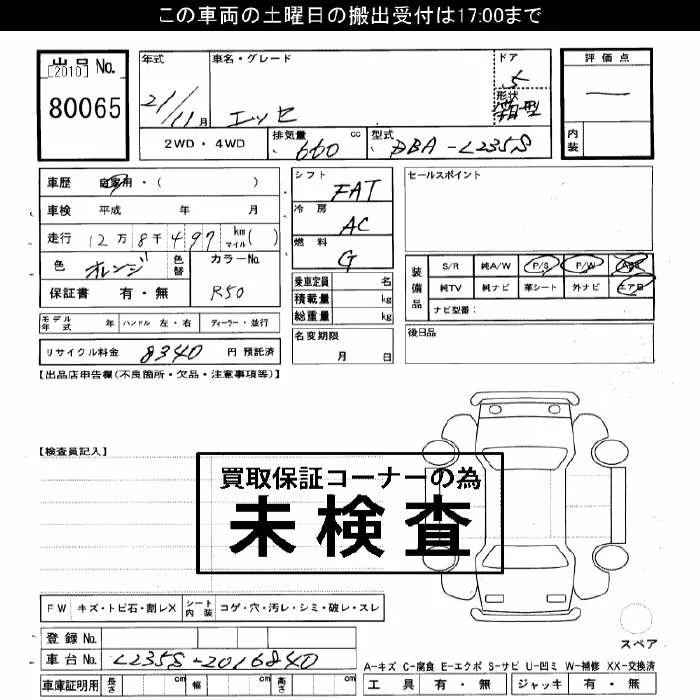 この車両の土曜日の搬出受付は17:00まで
出品No.
[2010]
80065
年式
21/11月
車名・グレード
エッセ
ドア
5
形状
箱型
評価点
内装
2WD・4WD
排気量 660 cc
型式 DBA-L235S
車歴 自家用・( )
車検 平成 年 月
走行 12万8千497 km マイル( )
色 オレンジ 色替
カラーNo. R50
保証書 有・無
シフト FAT
冷房 AC
燃料 G
乗車定員 名
積載量 kg
総重量 kg
セールスポイント
装備品
S/R 純A/W P/S P/W ABS
純TV 純ナビ 革シート 外ナビ エアB
ナビ型番:
モデル年式 年 ハンドル 左・右 ディーラー・並行
名変期限 月 日
後日品
リサイクル料金 8340 円 預託済
【出品店申告欄(不良箇所・欠品・注意事項等)】
【検査員記入】
買取保証コーナーの為
未検査
FW キズ・トビ石・割レX シート内装 コゲ・穴・汚レ・シミ・破レ・スレ
登録No.
車台No. L235S-2016840
スペア
A-キズ C-腐食 E-エクボ S-サビ U-凹ミ W-補修 XX-交換済
車庫証明用 長さ cm 幅 cm 高さ cm
工具 有・無 ジャッキ 有・無